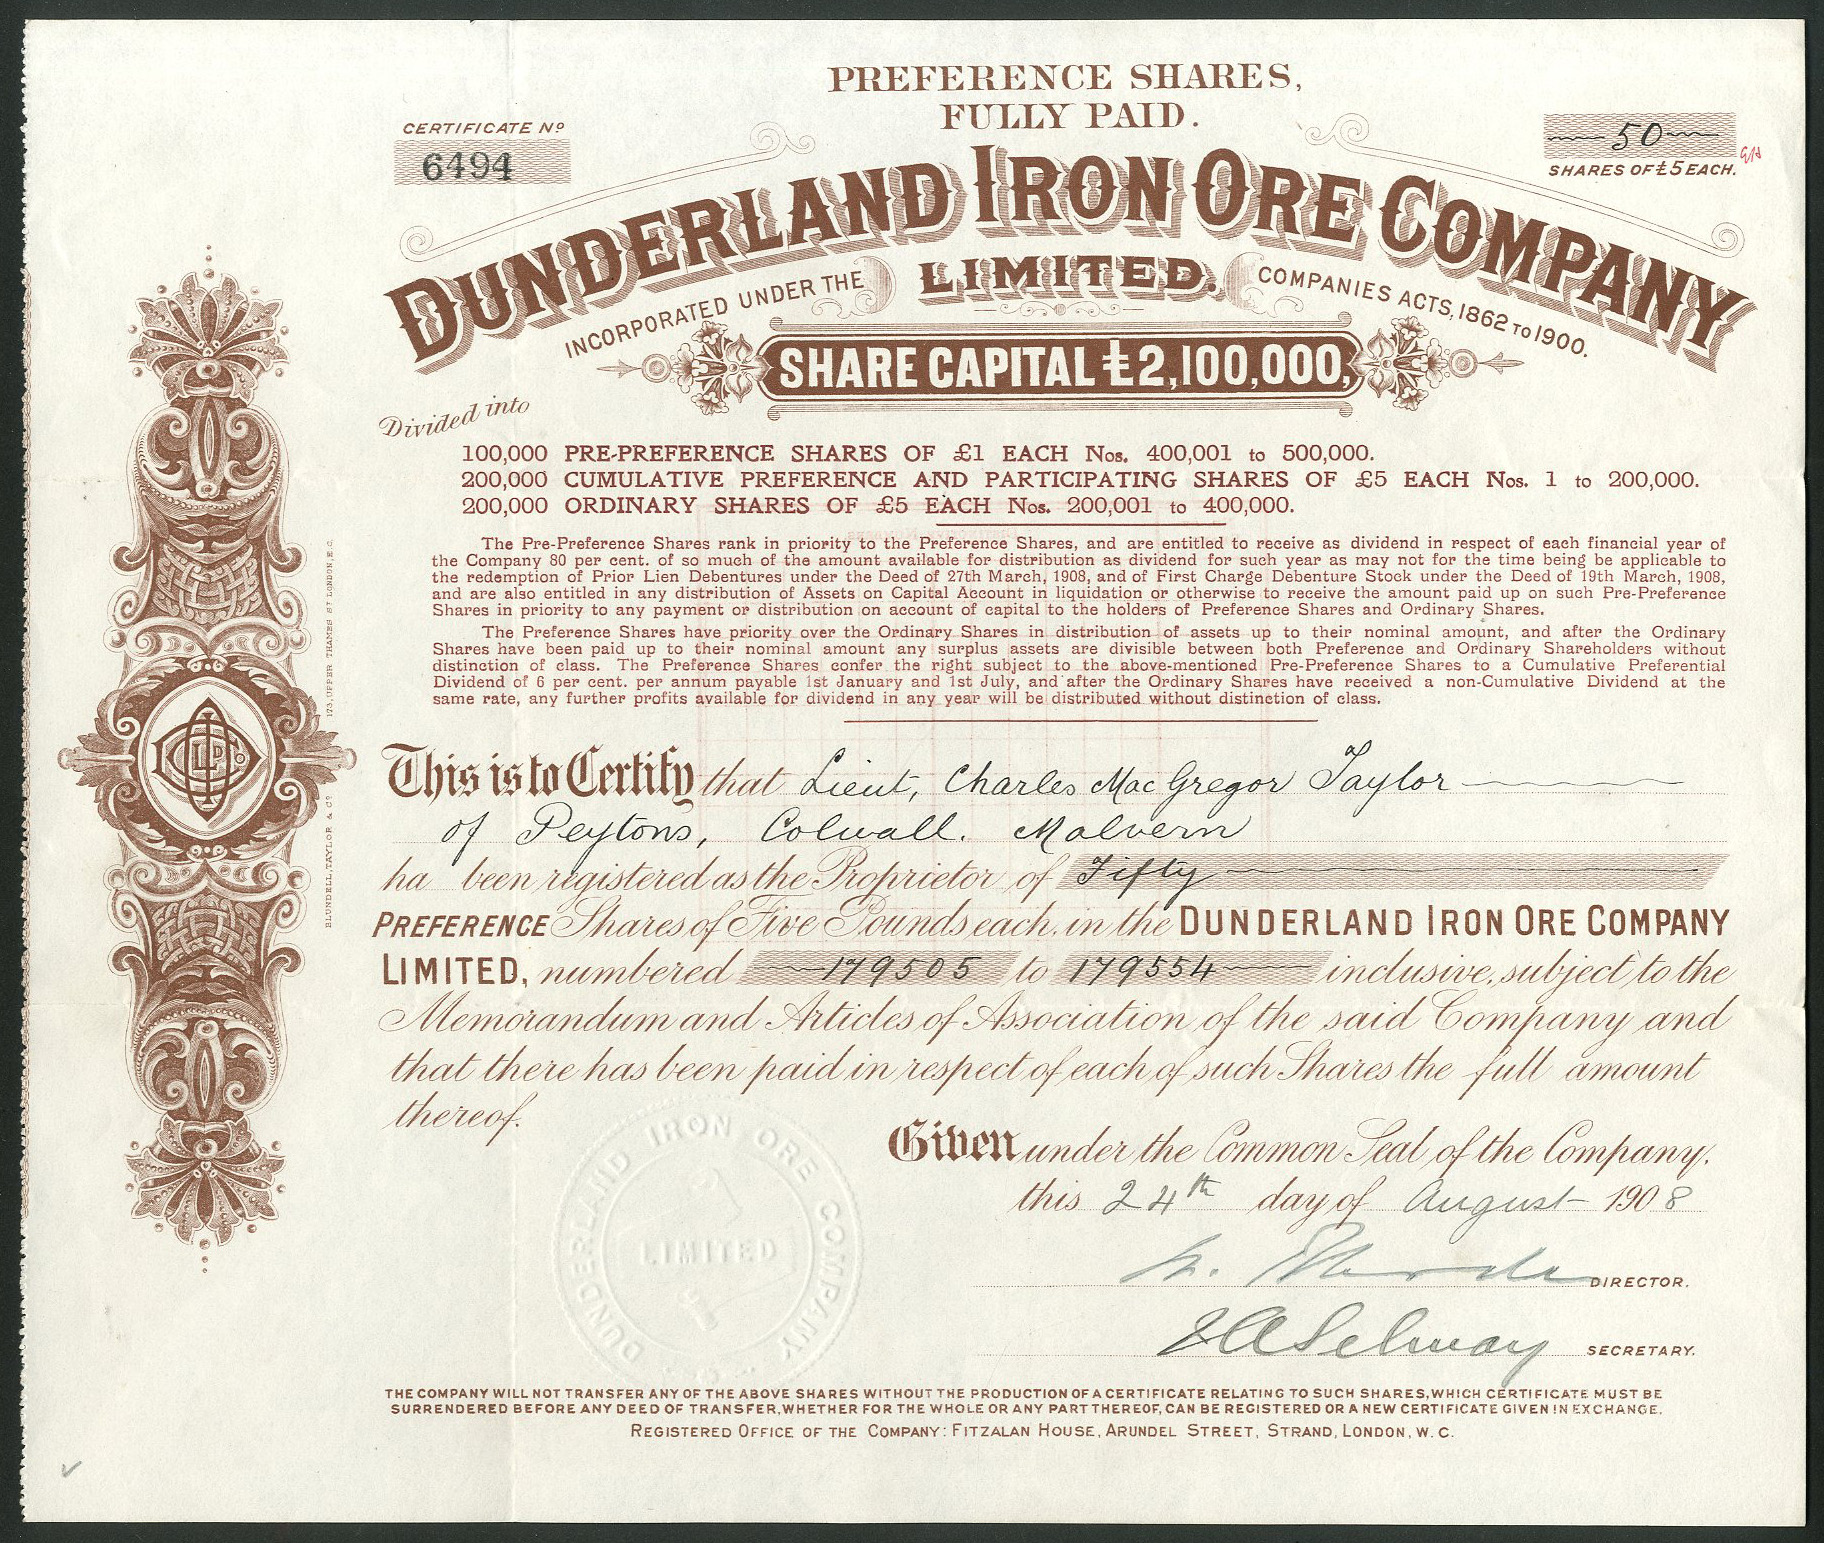 PREFERENCE SHARES,
FULLY PAID.
CERTIFICATE No
6494
50
SHARES OF £5 EACH.
DUNDERLAND IRON ORE COMPANY
LIMITED.
INCORPORATED UNDER THE COMPANIES ACTS, 1862 TO 1900.
SHARE CAPITAL £2,100,000,
Divided into
100,000 PRE-PREFERENCE SHARES OF £1 EACH Nos. 400,001 to 500,000.
200,000 CUMULATIVE PREFERENCE AND PARTICIPATING SHARES OF £5 EACH Nos. 1 to 200,000.
200,000 ORDINARY SHARES OF £5 EACH Nos. 200,001 to 400,000.
The Pre-Preference Shares rank in priority to the Preference Shares, and are entitled to receive as dividend in respect of each financial year of
the Company 80 per cent. of so much of the amount available for distribution as dividend for such year as may not for the time being be applicable to
the redemption of Prior Lien Debentures under the Deed of 27th March, 1908, and of First Charge Debenture Stock under the Deed of 19th March, 1908,
and are also entitled in any distribution of Assets on Capital Account in liquidation or otherwise to receive the amount paid up on such Pre-Preference
Shares in priority to any payment or distribution on account of capital to the holders of Preference Shares and Ordinary Shares.
The Preference Shares have priority over the Ordinary Shares in distribution of assets up to their nominal amount, and after the Ordinary
Shares have been paid up to their nominal amount any surplus assets are divisible between both Preference and Ordinary Shareholders without
distinction of class. The Preference Shares confer the right subject to the above-mentioned Pre-Preference Shares to a Cumulative Preferential
Dividend of 6 per cent. per annum payable 1st January and 1st July, and after the Ordinary Shares have received a non-Cumulative Dividend at the
same rate, any further profits available for dividend in any year will be distributed without distinction of class.
This is to Certify that Lieut, Charles MacGregor Taylor
of Peytons, Colwall. Malvern
ha been registered as the Proprietor of Fifty
PREFERENCE Shares of Five Pounds each, in the DUNDERLAND IRON ORE COMPANY
LIMITED, numbered 179505 to 179554 inclusive, subject to the
Memorandum and Articles of Association of the said Company and
that there has been paid in respect of each of such Shares the full amount
thereof.
Given under the Common Seal of the Company,
this 24th day of August 1908
DIRECTOR.
J A Selway SECRETARY.
DUNDERLAND IRON ORE COMPANY
LIMITED
THE COMPANY WILL NOT TRANSFER ANY OF THE ABOVE SHARES WITHOUT THE PRODUCTION OF A CERTIFICATE RELATING TO SUCH SHARES, WHICH CERTIFICATE MUST BE
SURRENDERED BEFORE ANY DEED OF TRANSFER, WHETHER FOR THE WHOLE OR ANY PART THEREOF, CAN BE REGISTERED OR A NEW CERTIFICATE GIVEN IN EXCHANGE.
REGISTERED OFFICE OF THE COMPANY: FITZALAN HOUSE, ARUNDEL STREET, STRAND, LONDON, W.C.
BLUNDELL, TAYLOR & Co 173, UPPER THAMES ST LONDON, E.C.